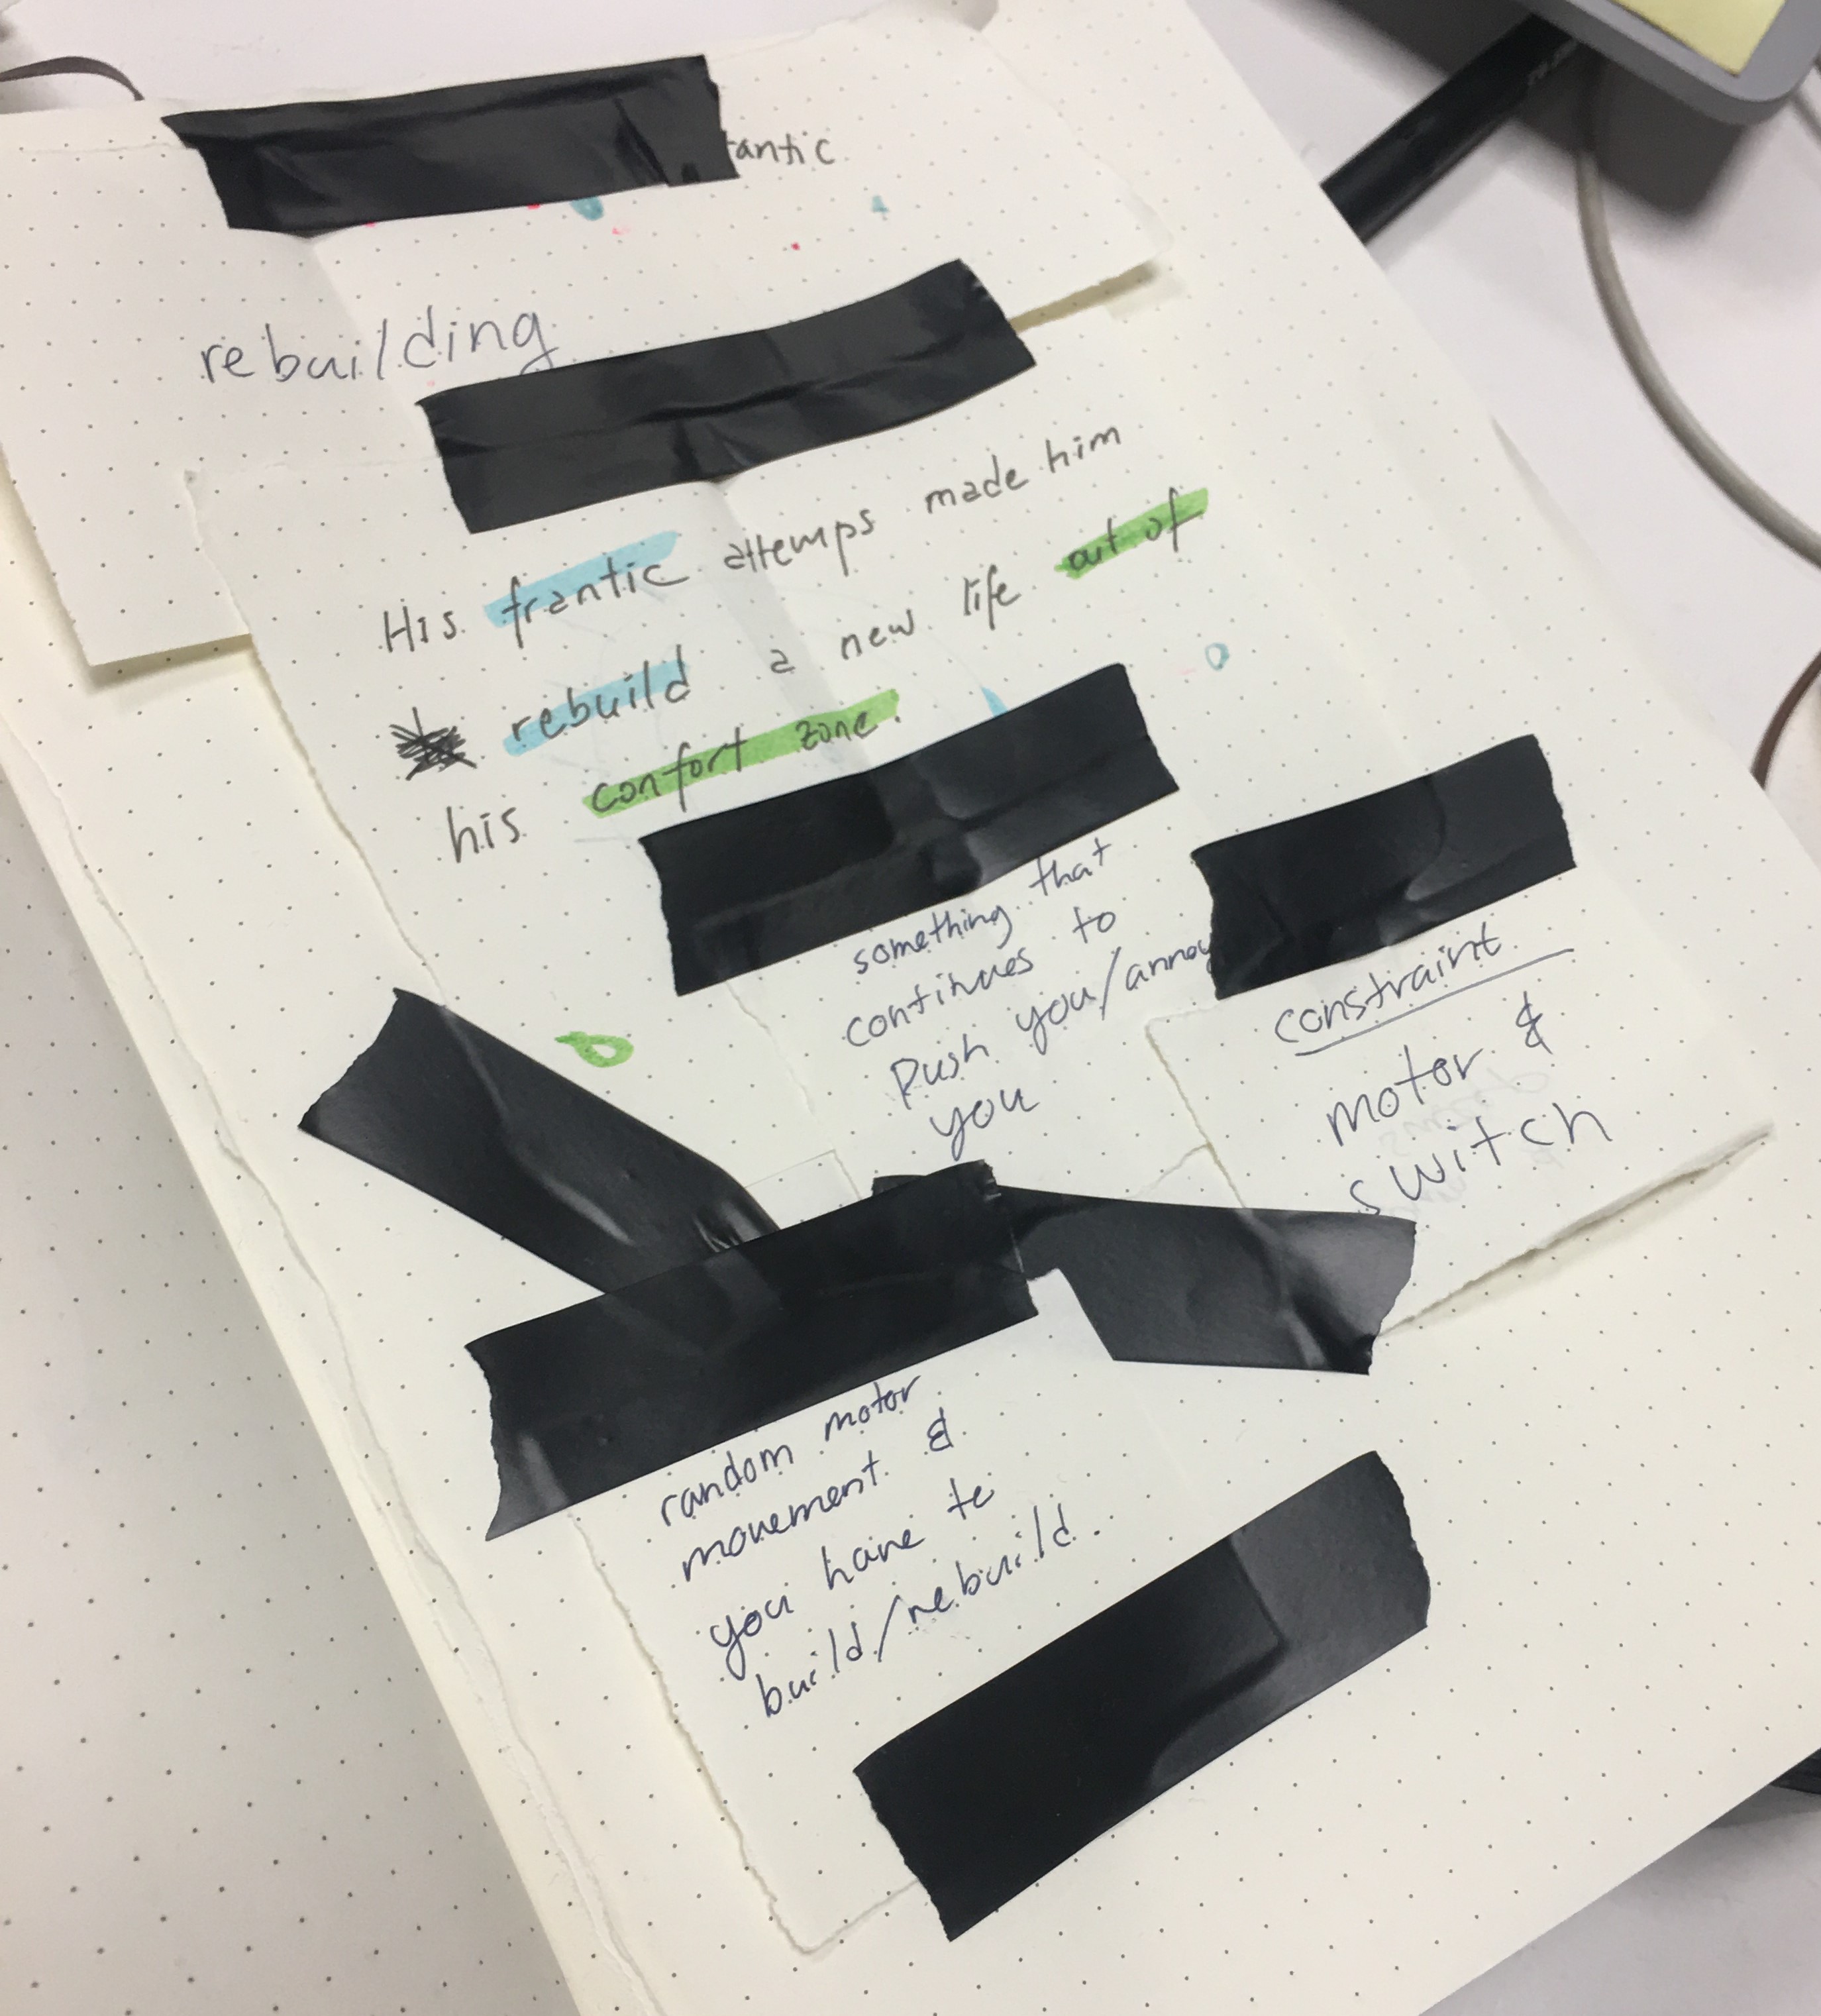 rebuilding
His frantic attemps made him
rebuild a new life out of
his confort zone.
something that
continues to
Push you/annoy
you
constraint
motor &
switch
random motor
movement &
you have to
build/rebuild.